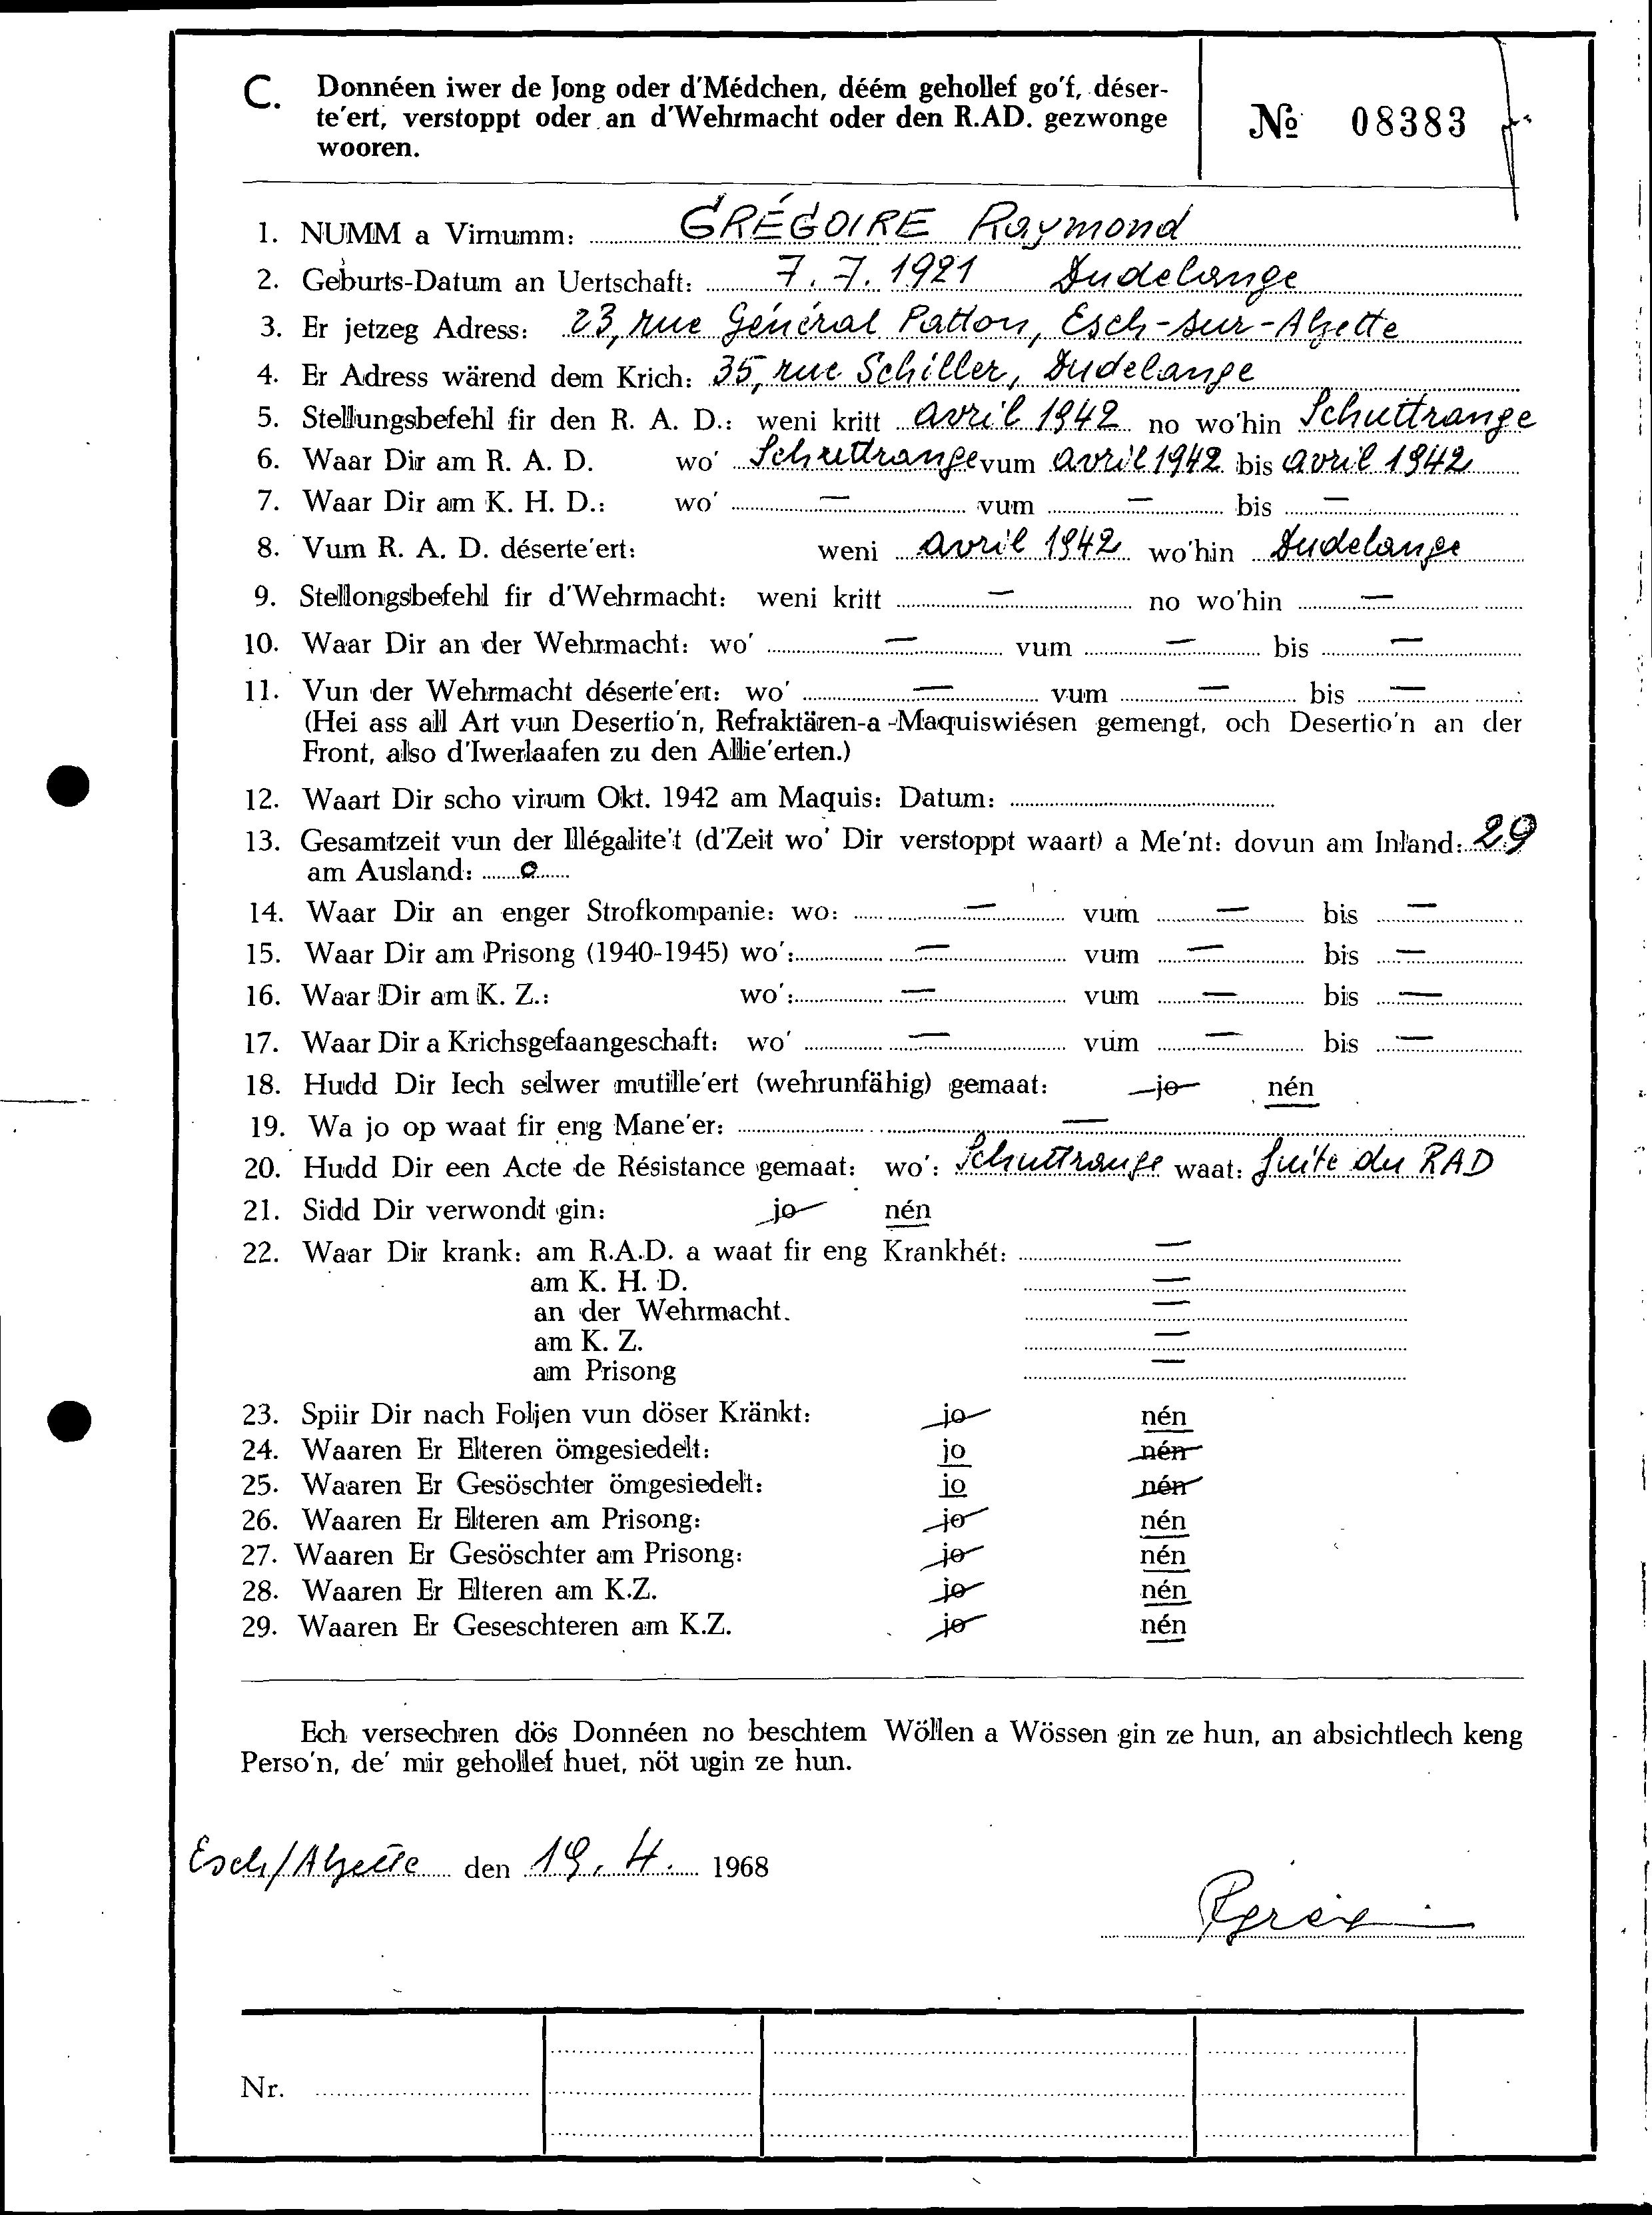 C. Donnéen iwer de Jong oder d'Médchen, déém gehollef go'f, déser-
te'ert, verstoppt oder an d'Wehrmacht oder den R.AD. gezwonge
wooren.
№ 08383
1. NUMM a Virnumm: GRÉGOIRE Raymond
2. Geburts-Datum an Uertschaft: 7.7.1921 Dudelange
3. Er jetzeg Adress: 23, rue Général Patton, Esch-sur-Alzette
4. Er Adress wärend dem Krich: 35, rue Schiller, Dudelange
5. Stellungsbefehl fir den R. A. D.: weni kritt avril 1942 no wo'hin Schuttrange
6. Waar Dir am R. A. D. wo' Schuttrange vum avril 1942 bis avril 1942
7. Waar Dir am K. H. D.: wo' — vum — bis —
8. Vum R. A. D. déserte'ert: weni avril 1942 wo'hin Dudelange
9. Stellongsbefehl fir d'Wehrmacht: weni kritt — no wo'hin —
10. Waar Dir an der Wehrmacht: wo' — vum — bis —
11. Vun der Wehrmacht déserte'ert: wo' — vum — bis —
(Hei ass all Art vun Desertio'n, Refraktären-a-Maquiswiésen gemengt, och Desertio'n an der
Front, also d'Iwerlaafen zu den Allie'erten.)
12. Waart Dir scho virum Okt. 1942 am Maquis: Datum:
13. Gesamtzeit vun der Illégalite't (d'Zeit wo' Dir verstoppt waart) a Me'nt: dovun am Inland: 29
am Ausland: 0
14. Waar Dir an enger Strofkompanie: wo: — vum — bis —
15. Waar Dir am Prisong (1940-1945) wo': — vum — bis —
16. Waar Dir am K. Z.: wo': — vum — bis —
17. Waar Dir a Krichsgefaangeschaft: wo' — vum — bis —
18. Hudd Dir Iech selwer mutille'ert (wehrunfähig) gemaat: jo nén
19. Wa jo op waat fir eng Mane'er: —
20. Hudd Dir een Acte de Résistance gemaat: wo': Schuttrange waat: fuite du RAD
21. Sidd Dir verwondt gin: jo nén
22. Waar Dir krank: am R.A.D. a waat fir eng Krankhét: —
am K. H. D. —
an der Wehrmacht. —
am K. Z. —
am Prisong —
23. Spiir Dir nach Foljen vun döser Kränkt: jo nén
24. Waaren Er Elteren ömgesiedelt: jo nén
25. Waaren Er Gesöschter ömgesiedelt: jo nén
26. Waaren Er Elteren am Prisong: jo nén
27. Waaren Er Gesöschter am Prisong: jo nén
28. Waaren Er Elteren am K.Z. jo nén
29. Waaren Er Geseschteren am K.Z. jo nén
Ech versechren dös Donnéen no beschtem Wöllen a Wössen gin ze hun, an absichtlech keng
Perso'n, de' mir gehollef huet, nöt ugin ze hun.
Esch/Alzette den 19.4. 1968
Nr.